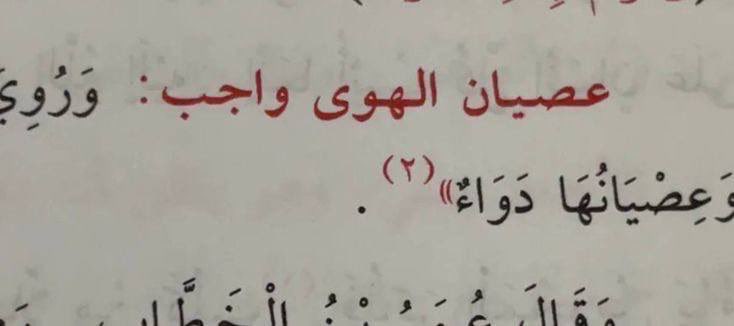 عصيان الهوى واجب: وَرُوِيَ
وَعِصْيَانُهَا دَوَاءٌ»(٢).
وَقَالَ عُمَرُ بْنُ الْخَطَّابِ